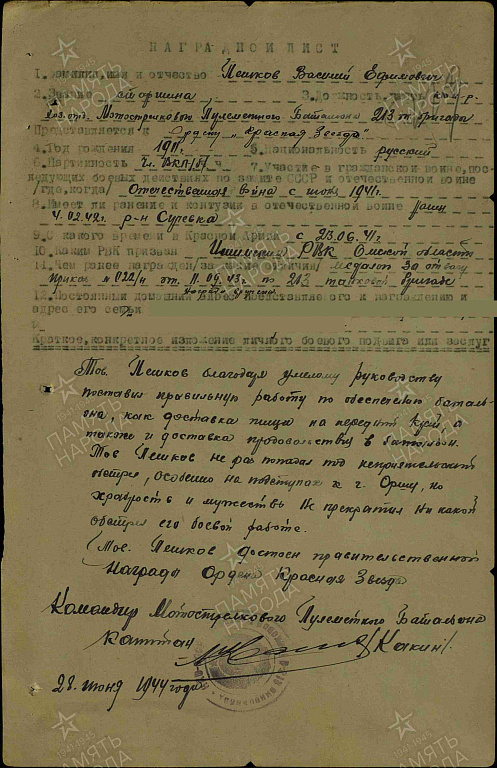 НАГРАДНОЙ ЛИСТ
1. Фамилия, имя и отчество Пешков Василий Ефимович
2. Звание старшина 3. Должность, часть
взв. отд. Мотострелково Пулеметного Батальона 213 т. бригады
Представляется к Ордену „Красная Звезда"
4. Год рождения 1911 5. Национальность русский
6. Партийность чл. ВКП/б/ 7. Участие в гражданской войне, пос-
ледующих боевых действиях по защите СССР и отечественной войне
/где, когда/ Отечественная война с июня 1941г.
8. Имеет ли ранение и контузия в отечественной войне ранен
4.02.42г. р-н
9. С какого времени в Красной Армии с 23.06.41г
10. Каким РВК призван Ишимским РВК Омской области
11. Чем ранее награжден /за какие отличия/ медалью За отвагу
приказ №022/н от 11.09.43г. по 213 танковой бригаде
12. Постоянный домашний адрес представляемого к награждению и
адрес его семьи
Краткое, конкретное изложение личного боевого подвига или заслуг
Тов. Пешков благодаря умелому руководству
поставил правильную работу по обеспечению баталь-
она, как доставка пищи на передний край, а
также и доставка продовольствия в батальон.
Тов Пешков не раз попадал под неприятельский
обстрел, особенно на подступах к г. Орши, но
храбрость и мужество не прекратил ни какой
обстрел его боевой работе.
Тов. Пешков достоен правительственной
Награды Ордена Красная Звезда
Командир Мотострелкового Пулеметного Батальона
Капитан /Какин/
28 июня 1944 года
ПАМЯТЬ НАРОДА
1941-1945